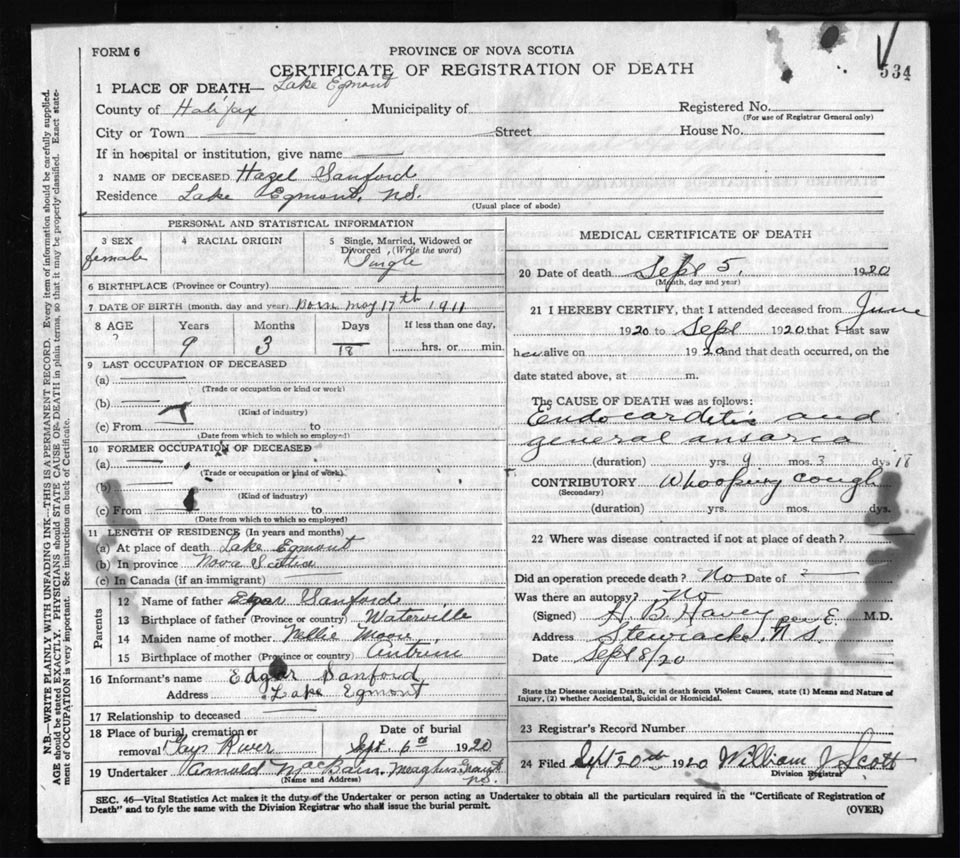 FORM 6
PROVINCE OF NOVA SCOTIA
CERTIFICATE OF REGISTRATION OF DEATH
534
1 PLACE OF DEATH— Lake Egmont
County of Halifax Municipality of Registered No.
(For use of Registrar General only)
City or Town Street House No.
If in hospital or institution, give name
2 NAME OF DECEASED Hazel Sanford
Residence Lake Egmont, N.S.
(Usual place of abode)
PERSONAL AND STATISTICAL INFORMATION
3 SEX female 4 RACIAL ORIGIN 5 Single, Married, Widowed or Divorced (Write the word) Single
6 BIRTHPLACE (Province or Country)
7 DATE OF BIRTH (month, day and year) Born May 17th 1911
8 AGE Years Months Days If less than one day,
9 3 18 hrs. or min.
9 LAST OCCUPATION OF DECEASED
(a)
(Trade or occupation or kind or work)
(b)
(Kind of industry)
(c) From to
(Date from which to which so employed)
10 FORMER OCCUPATION OF DECEASED
(a)
(Trade or occupation or kind of work)
(b)
(Kind of industry)
(c) From to
(Date from which to which so employed)
11 LENGTH OF RESIDENCE (In years and months)
(a) At place of death Lake Egmont
(b) In province Nova Scotia
(c) In Canada (if an immigrant)
Parents
12 Name of father Edgar Sanford
13 Birthplace of father (Province or country) Waterville
14 Maiden name of mother Nellie Moore
15 Birthplace of mother (Province or country) Antrim
16 Informant's name Edgar Sanford
Address Lake Egmont
17 Relationship to deceased
18 Place of burial, cremation or removal Gays River Date of burial Sept. 6th 1920
19 Undertaker Arnold MacBain, Meaghers Grant NS.
(Name and Address)
MEDICAL CERTIFICATE OF DEATH
20 Date of death Sept 5, 1920
(Month, day and year)
21 I HEREBY CERTIFY, that I attended deceased from June
1920 to Sept 1920 that I last saw
her alive on 1920 and that death occurred, on the
date stated above, at m.
The CAUSE OF DEATH was as follows:
Endocarditis and
general ansarca
(duration) yrs. 9 mos. 3 dys 18
CONTRIBUTORY Whooping cough
(Secondary)
(duration) yrs. mos. dys.
22 Where was disease contracted if not at place of death?
Did an operation precede death? No Date of
Was there an autopsy? No
(Signed) H. B. Havey per E. M.D.
Address Stewiacke. N.S.
Date Sept 8/20
State the Disease causing Death, or in death from Violent Causes, state (1) Means and Nature of
Injury, (2) whether Accidental, Suicidal or Homicidal.
23 Registrar's Record Number
24 Filed Sept 20th 1920 William J. Scott
Division Registrar
SEC. 46—Vital Statistics Act makes it the duty of the Undertaker or person acting as Undertaker to obtain all the particulars required in the "Certificate of Registration of
Death" and to fyle the same with the Division Registrar who shall issue the burial permit.
(OVER)
N.B.—WRITE PLAINLY WITH UNFADING INK—THIS IS A PERMANENT RECORD. Every item of information should be carefully supplied.
AGE should be stated EXACTLY. PHYSICIANS should STATE CAUSE OF DEATH in plain terms, so that it may be properly classified. Exact state-
ment of OCCUPATION is very important. See instructions on back of Certificate.